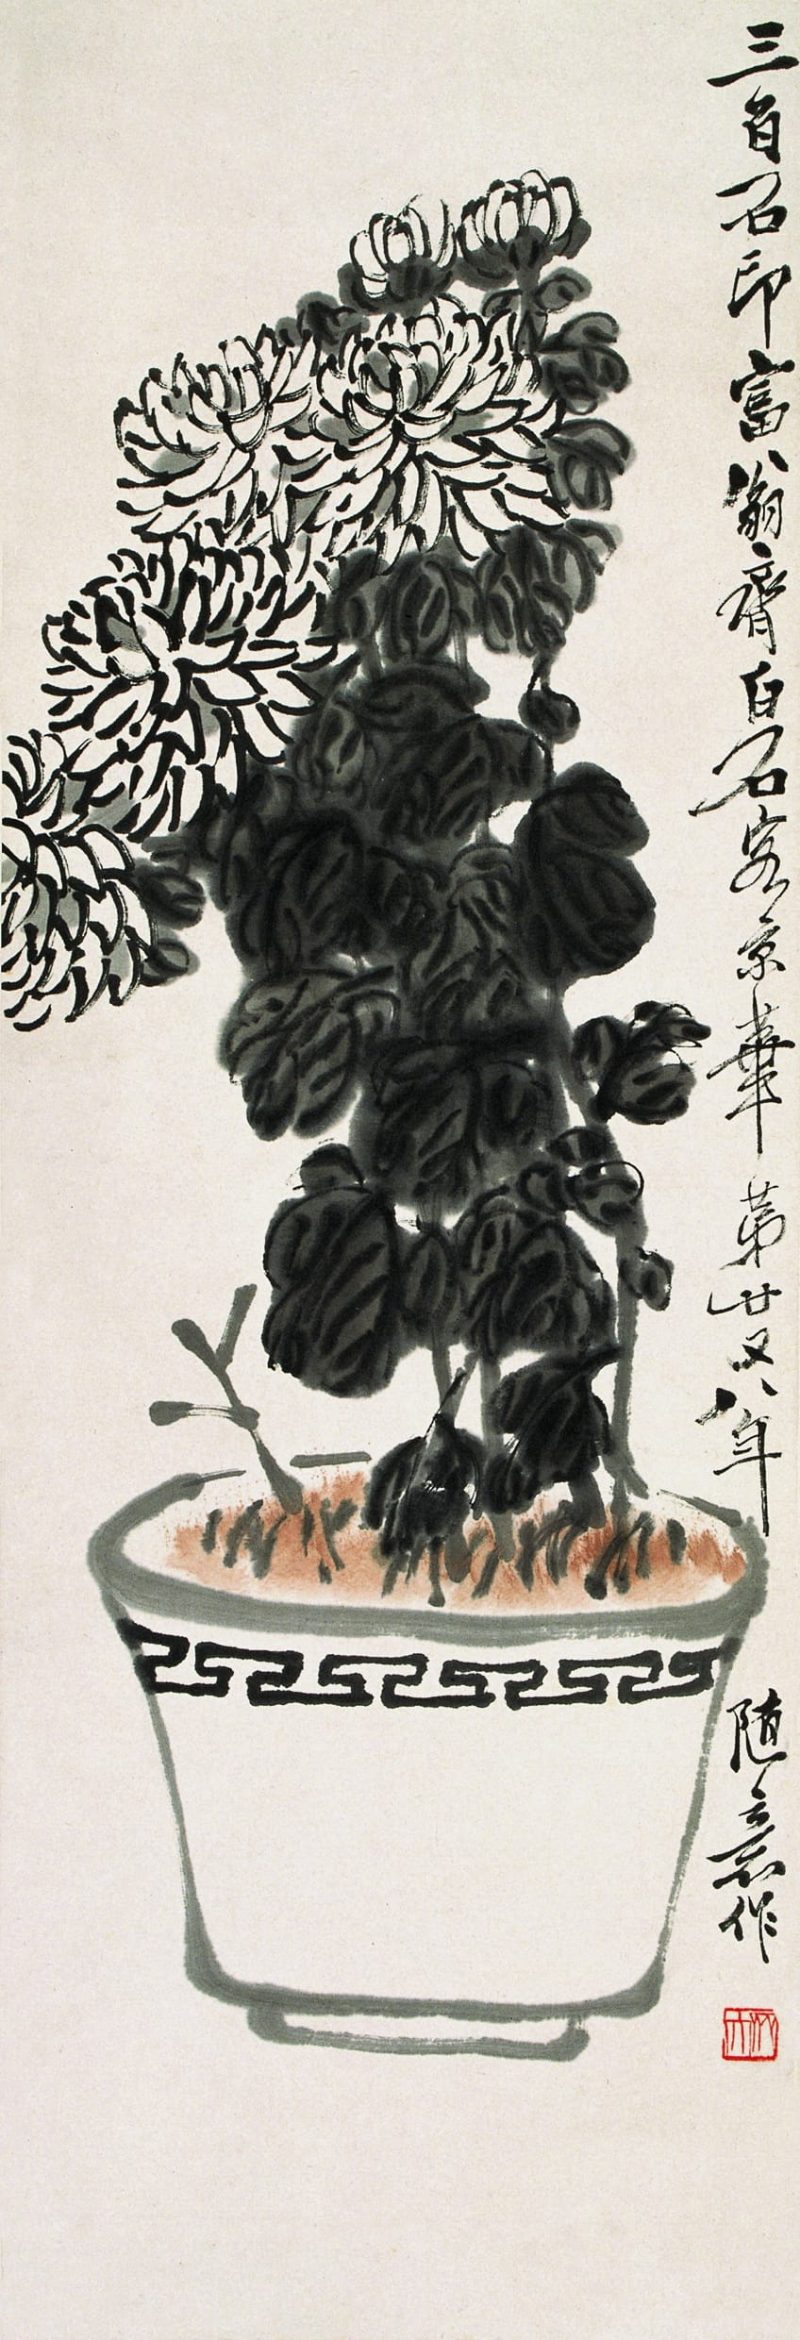 三百石印富翁齊白石客京華第廿又八年
隨意作
木人